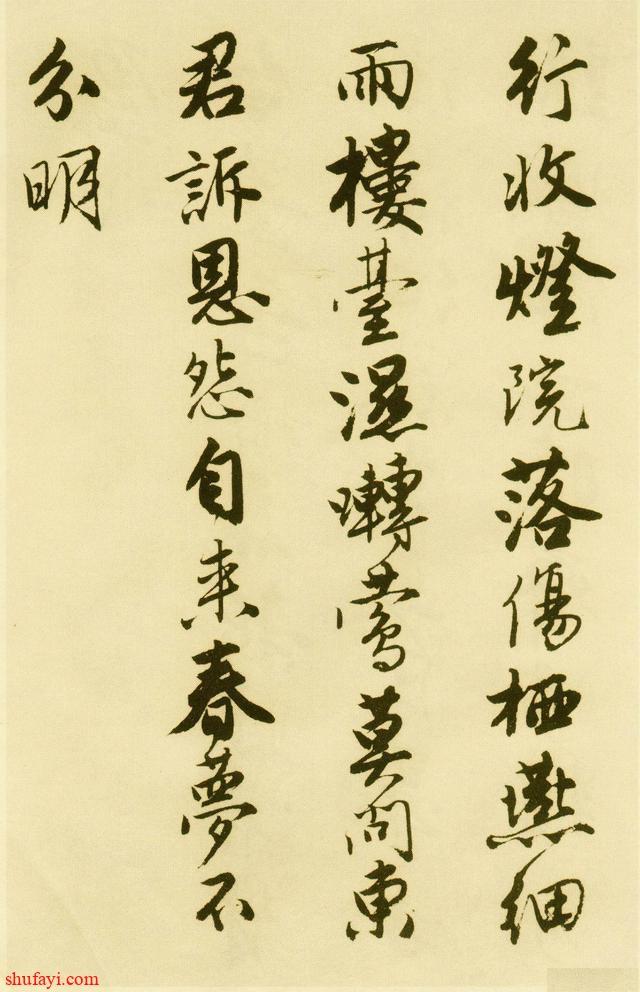 行收燈院落傷栖燕細
雨樓臺濕囀鶯莫問東
君訴恩怨自来春夢不
分明
shufayi.com